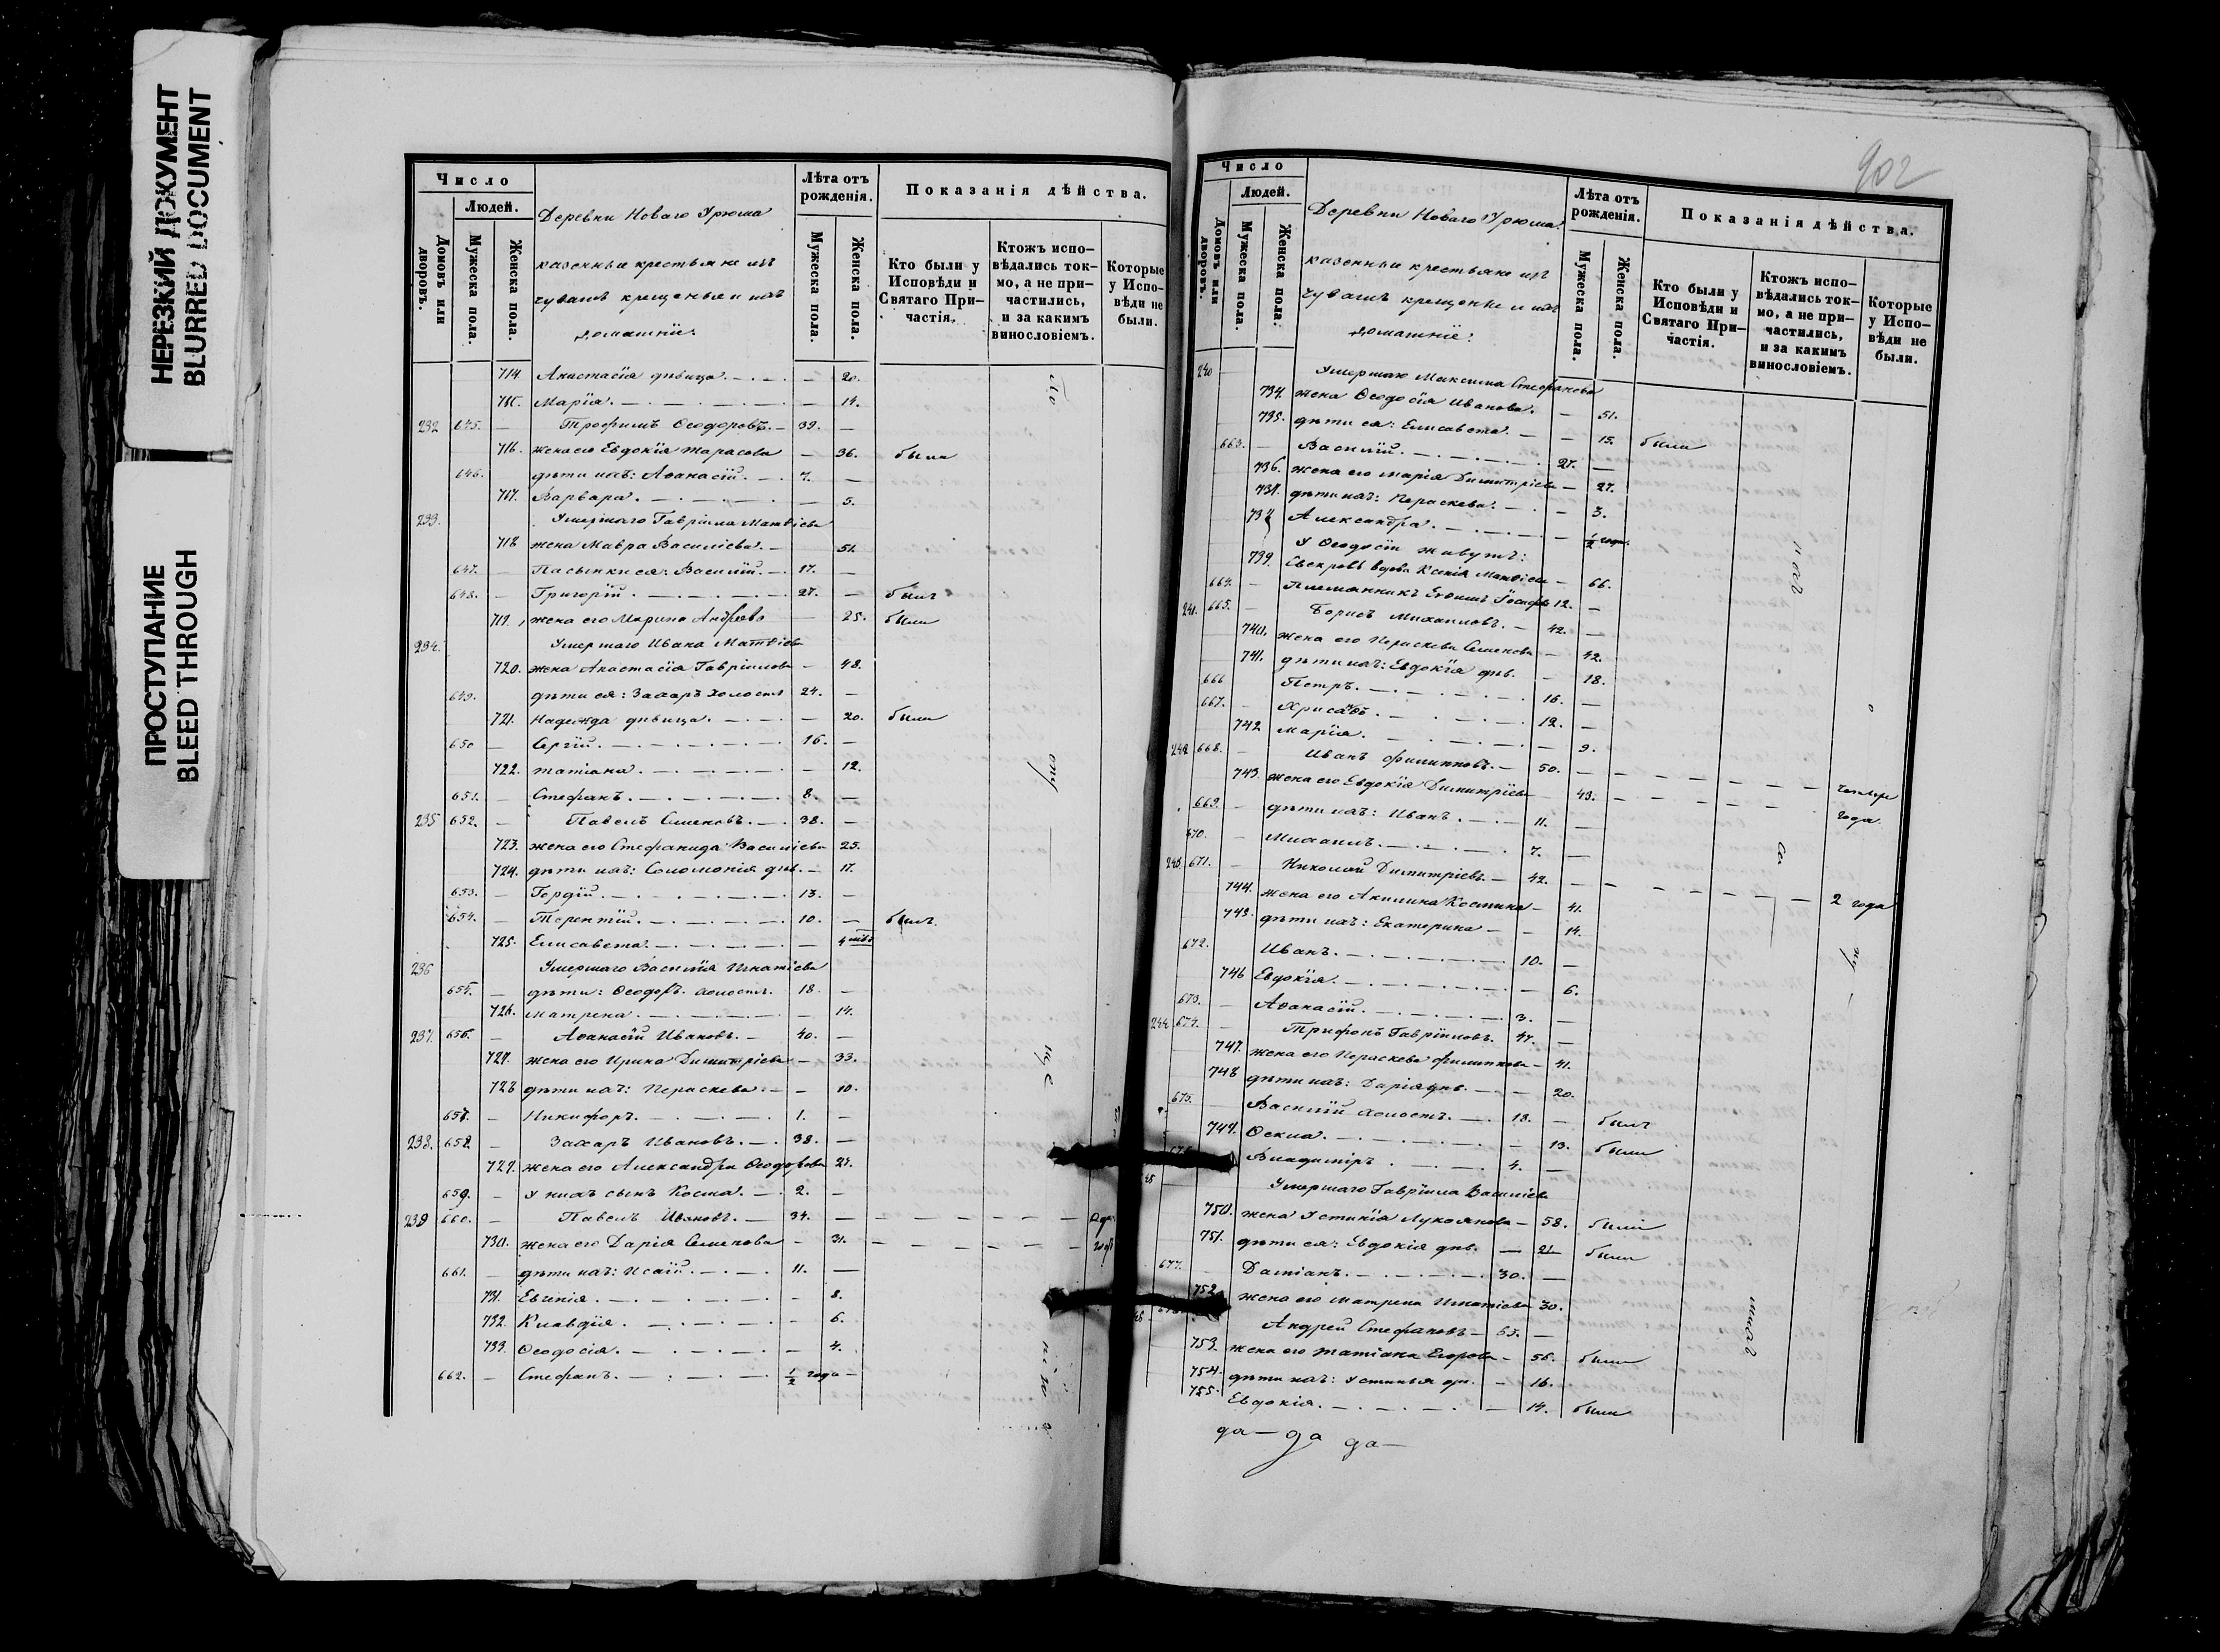 НЕРЕЗКИЙ ДОКУМЕНТ
BLURRED DOCUMENT
ПРОСТУПАНИЕ
BLEED THROUGH
Число
Людей.
Домовъ или дворовъ.
Мужеска пола.
Женска пола.
Деревни Новаго Урюша
казенные крестьяне изъ
чувашъ крещеные и ихъ
домашніе.
Лѣта отъ рожденія.
Мужеска пола.
Женска пола.
Показанія дѣйства.
Кто были у Исповѣди и Святаго Причастія.
Ктожъ исповѣдались токмо, а не причастились, и за какимъ винословіемъ.
Которые у Исповѣди не были.
714. Анастасія дѣвица. — 20.
715. Марія. — 14.
232 645. — Трофимъ Ѳеодоровъ. — 39. —
716. жена его Евдокія Тарасова — 36. были
646. дѣти ихъ: Аѳанасій. — 7. —
717. Варвара. — 5.
233. Умершаго Гавріила Матвіева
718 жена Мавра Василіева. — 51.
647. — Пасынки ея: Василій. — 17. —
648. — Григорій. — 27. — былъ
719. жена его Марина Андреева — 25. были
234. Умершаго Ивана Матвіева
720. жена Анастасія Гавріилова — 48.
649. дѣти ея: Захаръ холостъ 24. —
721. Надежда дѣвица. — 20. были
650 — Сергій. — 16. —
722. Татіана. — 12.
651. — Стефанъ. — 8. —
235 652. — Павелъ Семеновъ. — 38. —
723. жена его Стефанида Василіева 25.
724. дѣти ихъ: Соломонія дѣв. — 17.
653. — Гордій. — 13. —
654. — Терентій. — 10. — былъ
725. Елисавета. — 4
236 Умершаго Василія Игнатіева
655. — дѣти: Ѳеодоръ холостъ. 18. —
726. Матрена. — 14.
237. 656. — Аѳанасій Ивановъ. — 40. —
727. жена его Ирина Димитріева — 33.
728 дѣти ихъ: Параскева. — 10.
657. — Никифоръ. — 1. —
238. 658. — Захаръ Ивановъ. — 38. —
729. жена его Александра Ѳеодорова 27.
659. — У нихъ сынъ Косма. — 2. —
239 660. — Павелъ Ивановъ. — 34. —
730. жена его Дарія Семенова — 31.
661. — дѣти ихъ: Исаій. — 11. —
731. Евгенія. — 8.
732. Клавдія. — 6.
733. Ѳеодосія. — 4.
662. — Стефанъ. — ½ года —
902
Число
Людей.
Домовъ или дворовъ.
Мужеска пола.
Женска пола.
Деревни Новаго Урюша.
казенные крестьяне изъ
чувашъ крещеные и ихъ
домашніе:
Лѣта отъ рожденія.
Мужеска пола.
Женска пола.
Показанія дѣйства.
Кто были у Исповѣди и Святаго Причастія.
Ктожъ исповѣдались токмо, а не причастились, и за какимъ винословіемъ.
Которые у Исповѣди не были.
240 Умершаго Максима Стефанова
734. жена Ѳеодосія Иванова. — 51.
735. дѣти ея: Елисавета. — 15. были
663. — Василій. — 27. —
736. жена его Марія Димитріева — 27.
737. дѣти ихъ: Параскева. — 3.
738 Александра. — ½ года.
У Ѳеодосіи живутъ:
739. Свекровь вдова Ксенія Матвіева — 66.
664. — Племянникъ Евфимъ Іосифовъ 12. —
241. 665. — Борисъ Михаиловъ. — 42. —
740. жена его Параскева Семенова — 42.
741. дѣти ихъ: Евдокія дѣв. — 18.
666 Петръ. — 16. —
667. — Хрисанфъ. — 12. —
742 Марія. — 9.
242 668. — Иванъ Филипповъ. — 50. — четыре
743. жена его Евдокія Димитріева — 43. — года
669. — дѣти ихъ: Иванъ. — 11. —
670. — Михаилъ. — 7. —
243. 671. — Николай Димитріевъ. — 42. — 2 года
744. жена его Акилина Космина — 41.
745. дѣти ихъ: Екатерина — 14.
672. Иванъ. — 10. —
746 Евдокія. — 6.
673. — Аѳанасій. — 3. —
244 674. — Трифонъ Гавріиловъ. 47. —
747. жена его Параскева Филиппова — 41.
748 дѣти ихъ: Дарія дѣв. — 20.
675. Василій холостъ. — 18. — былъ
749. Ѳекла. — 13. были
Владиміръ. — 4. —
Умершаго Гавріила Василіева
750. жена Устинія Лукоянова — 58. были
751. дѣти ея: Евдокія дѣв. — 21 были
677. Даміанъ. — 30. —
752 жена его Матрена Игнатіева 30.
Андрей Стефановъ — 65. —
753. жена его Татіана Егорова — 56. были
754. дѣти ихъ: Устинья — 16.
755. Евдокія. — 14. были
да — да да —